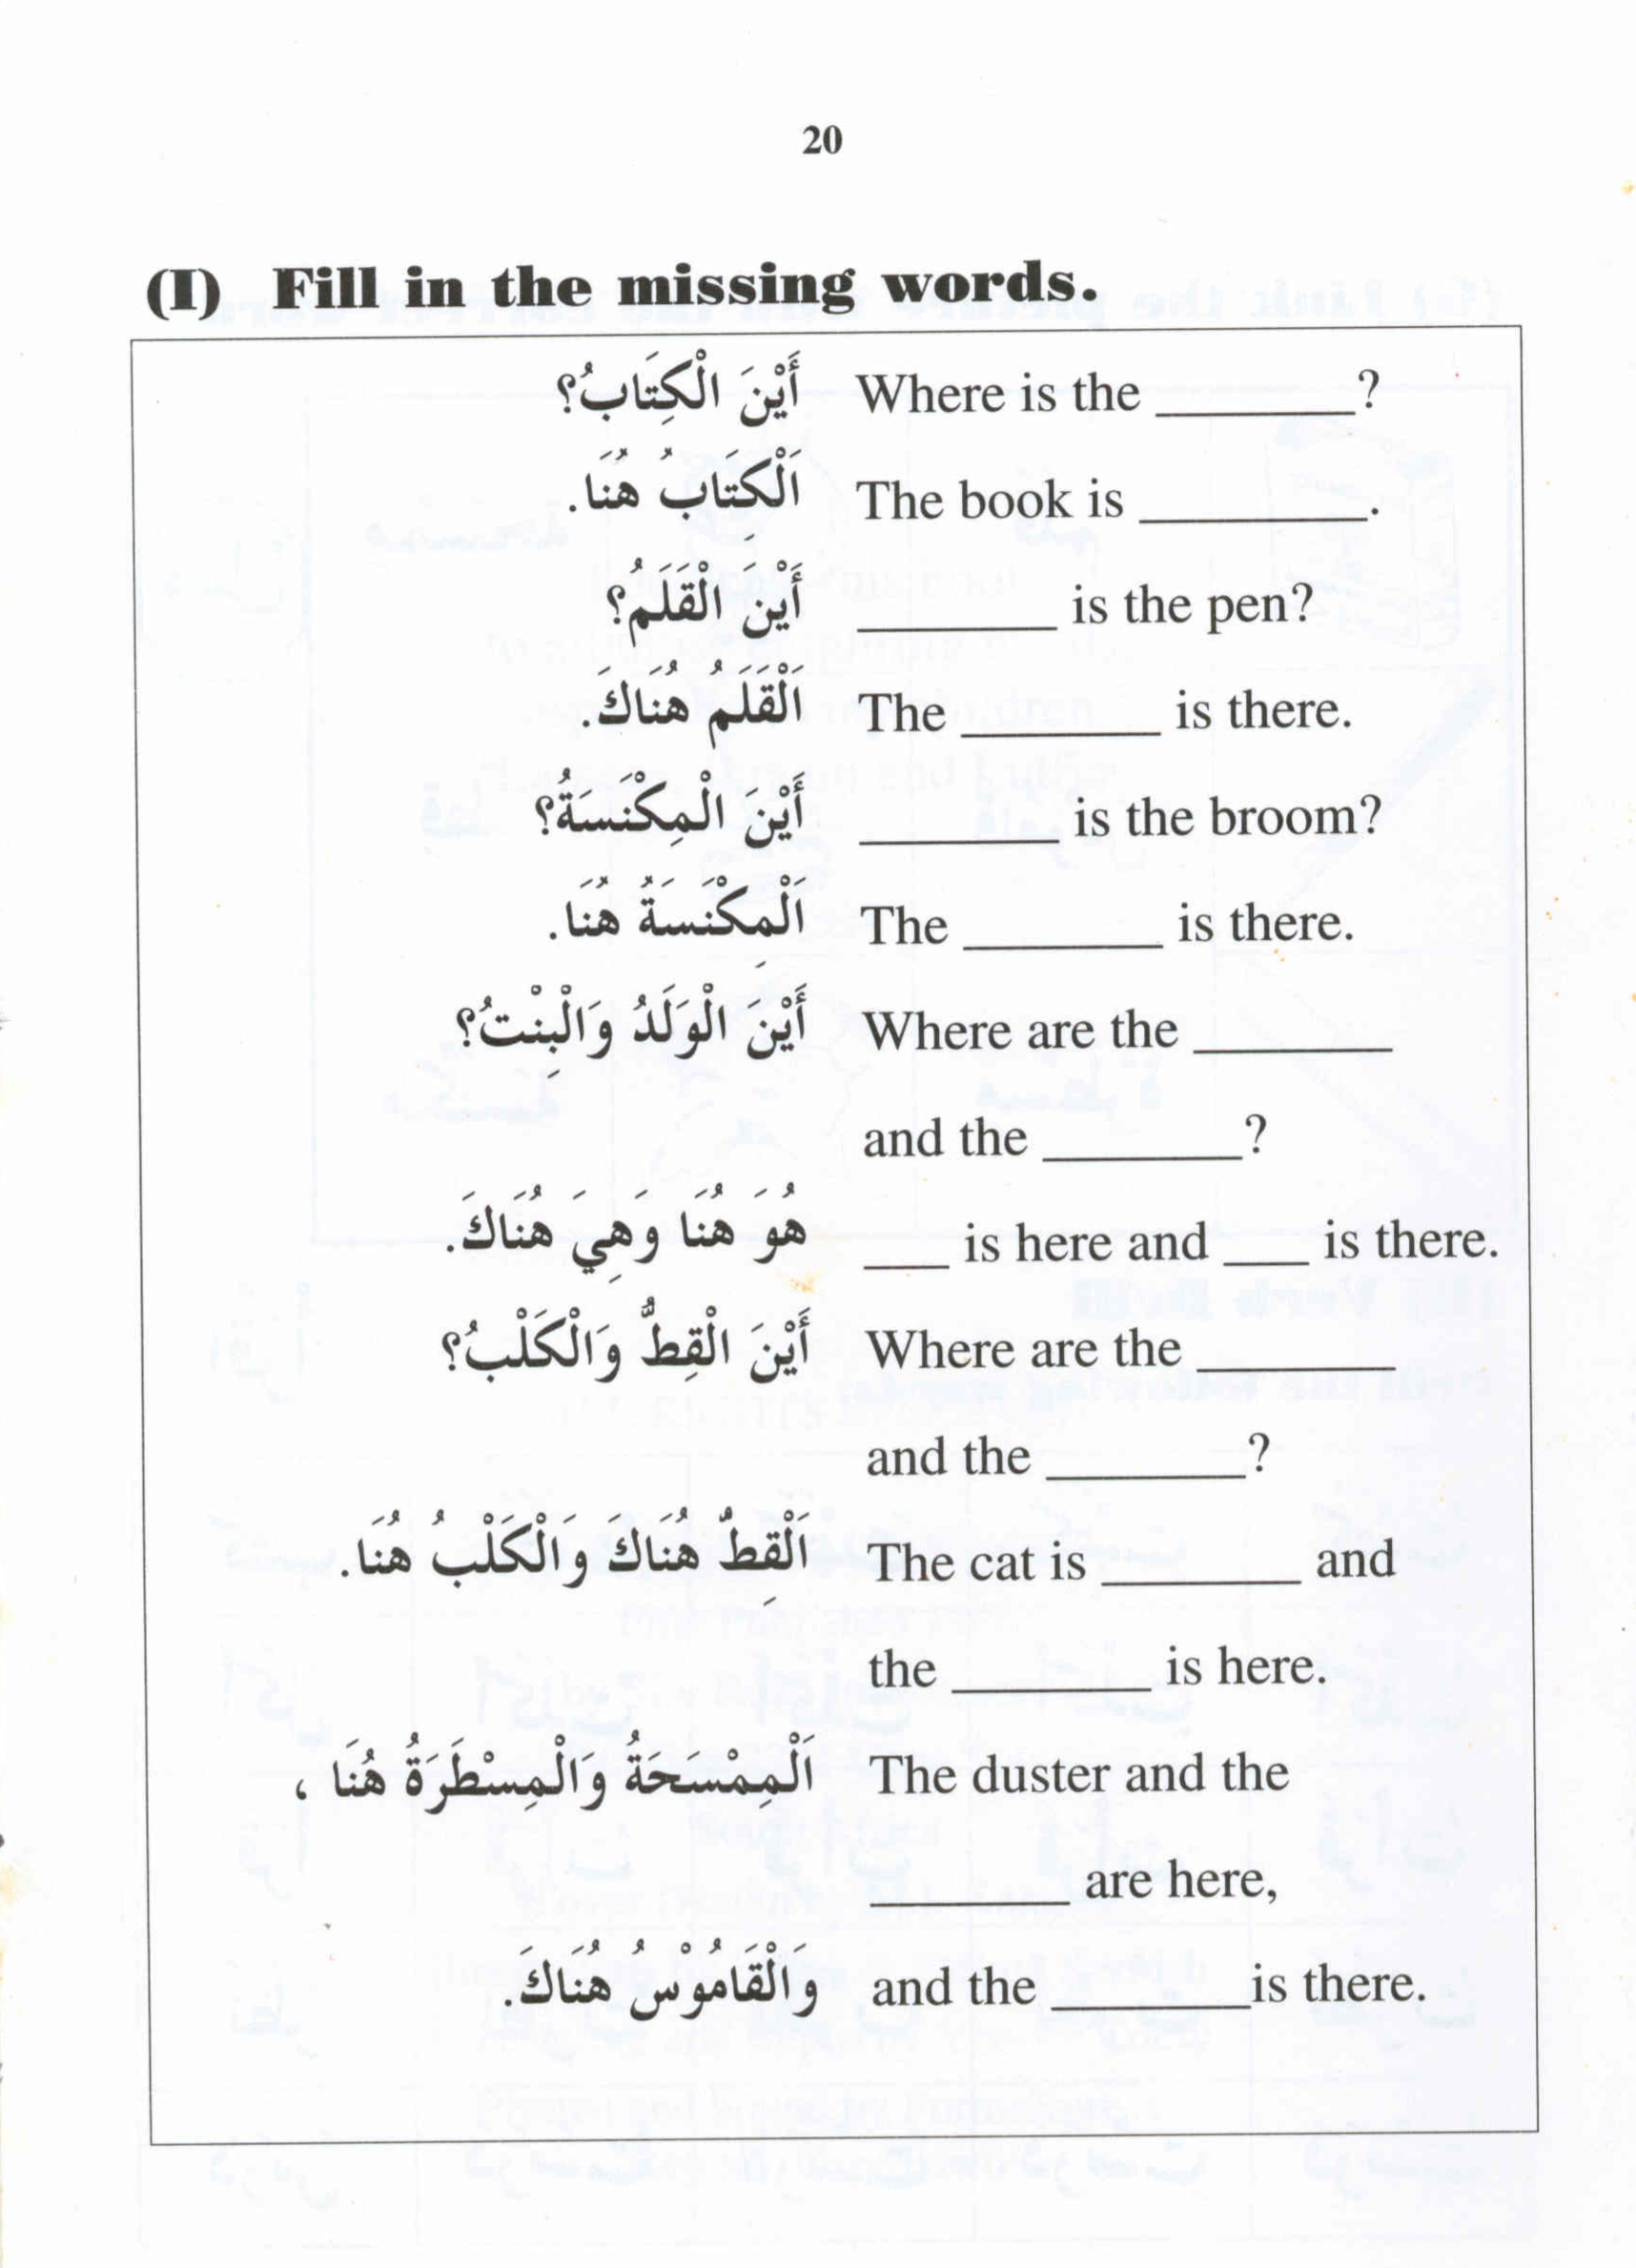 20
(I) Fill in the missing words.
أَيْنَ الْكِتَابُ؟ Where is the ________?
اَلْكِتَابُ هُنَا. The book is _________.
أَيْنَ الْقَلَمُ؟ ________ is the pen?
اَلْقَلَمُ هُنَاكَ. The ________ is there.
أَيْنَ الْمِكْنَسَةُ؟ ________ is the broom?
اَلْمِكْنَسَةُ هُنَا. The ________ is there.
أَيْنَ الْوَلَدُ وَالْبِنْتُ؟ Where are the ________
and the ________?
هُوَ هُنَا وَهِيَ هُنَاكَ. ___ is here and ___ is there.
أَيْنَ الْقِطُّ وَالْكَلْبُ؟ Where are the ________
and the ________?
اَلْقِطُّ هُنَاكَ وَالْكَلْبُ هُنَا. The cat is ________ and
the ________ is here.
اَلْمِمْسَحَةُ وَالْمِسْطَرَةُ هُنَا ، The duster and the
________ are here,
وَالْقَامُوْسُ هُنَاكَ. and the ________is there.